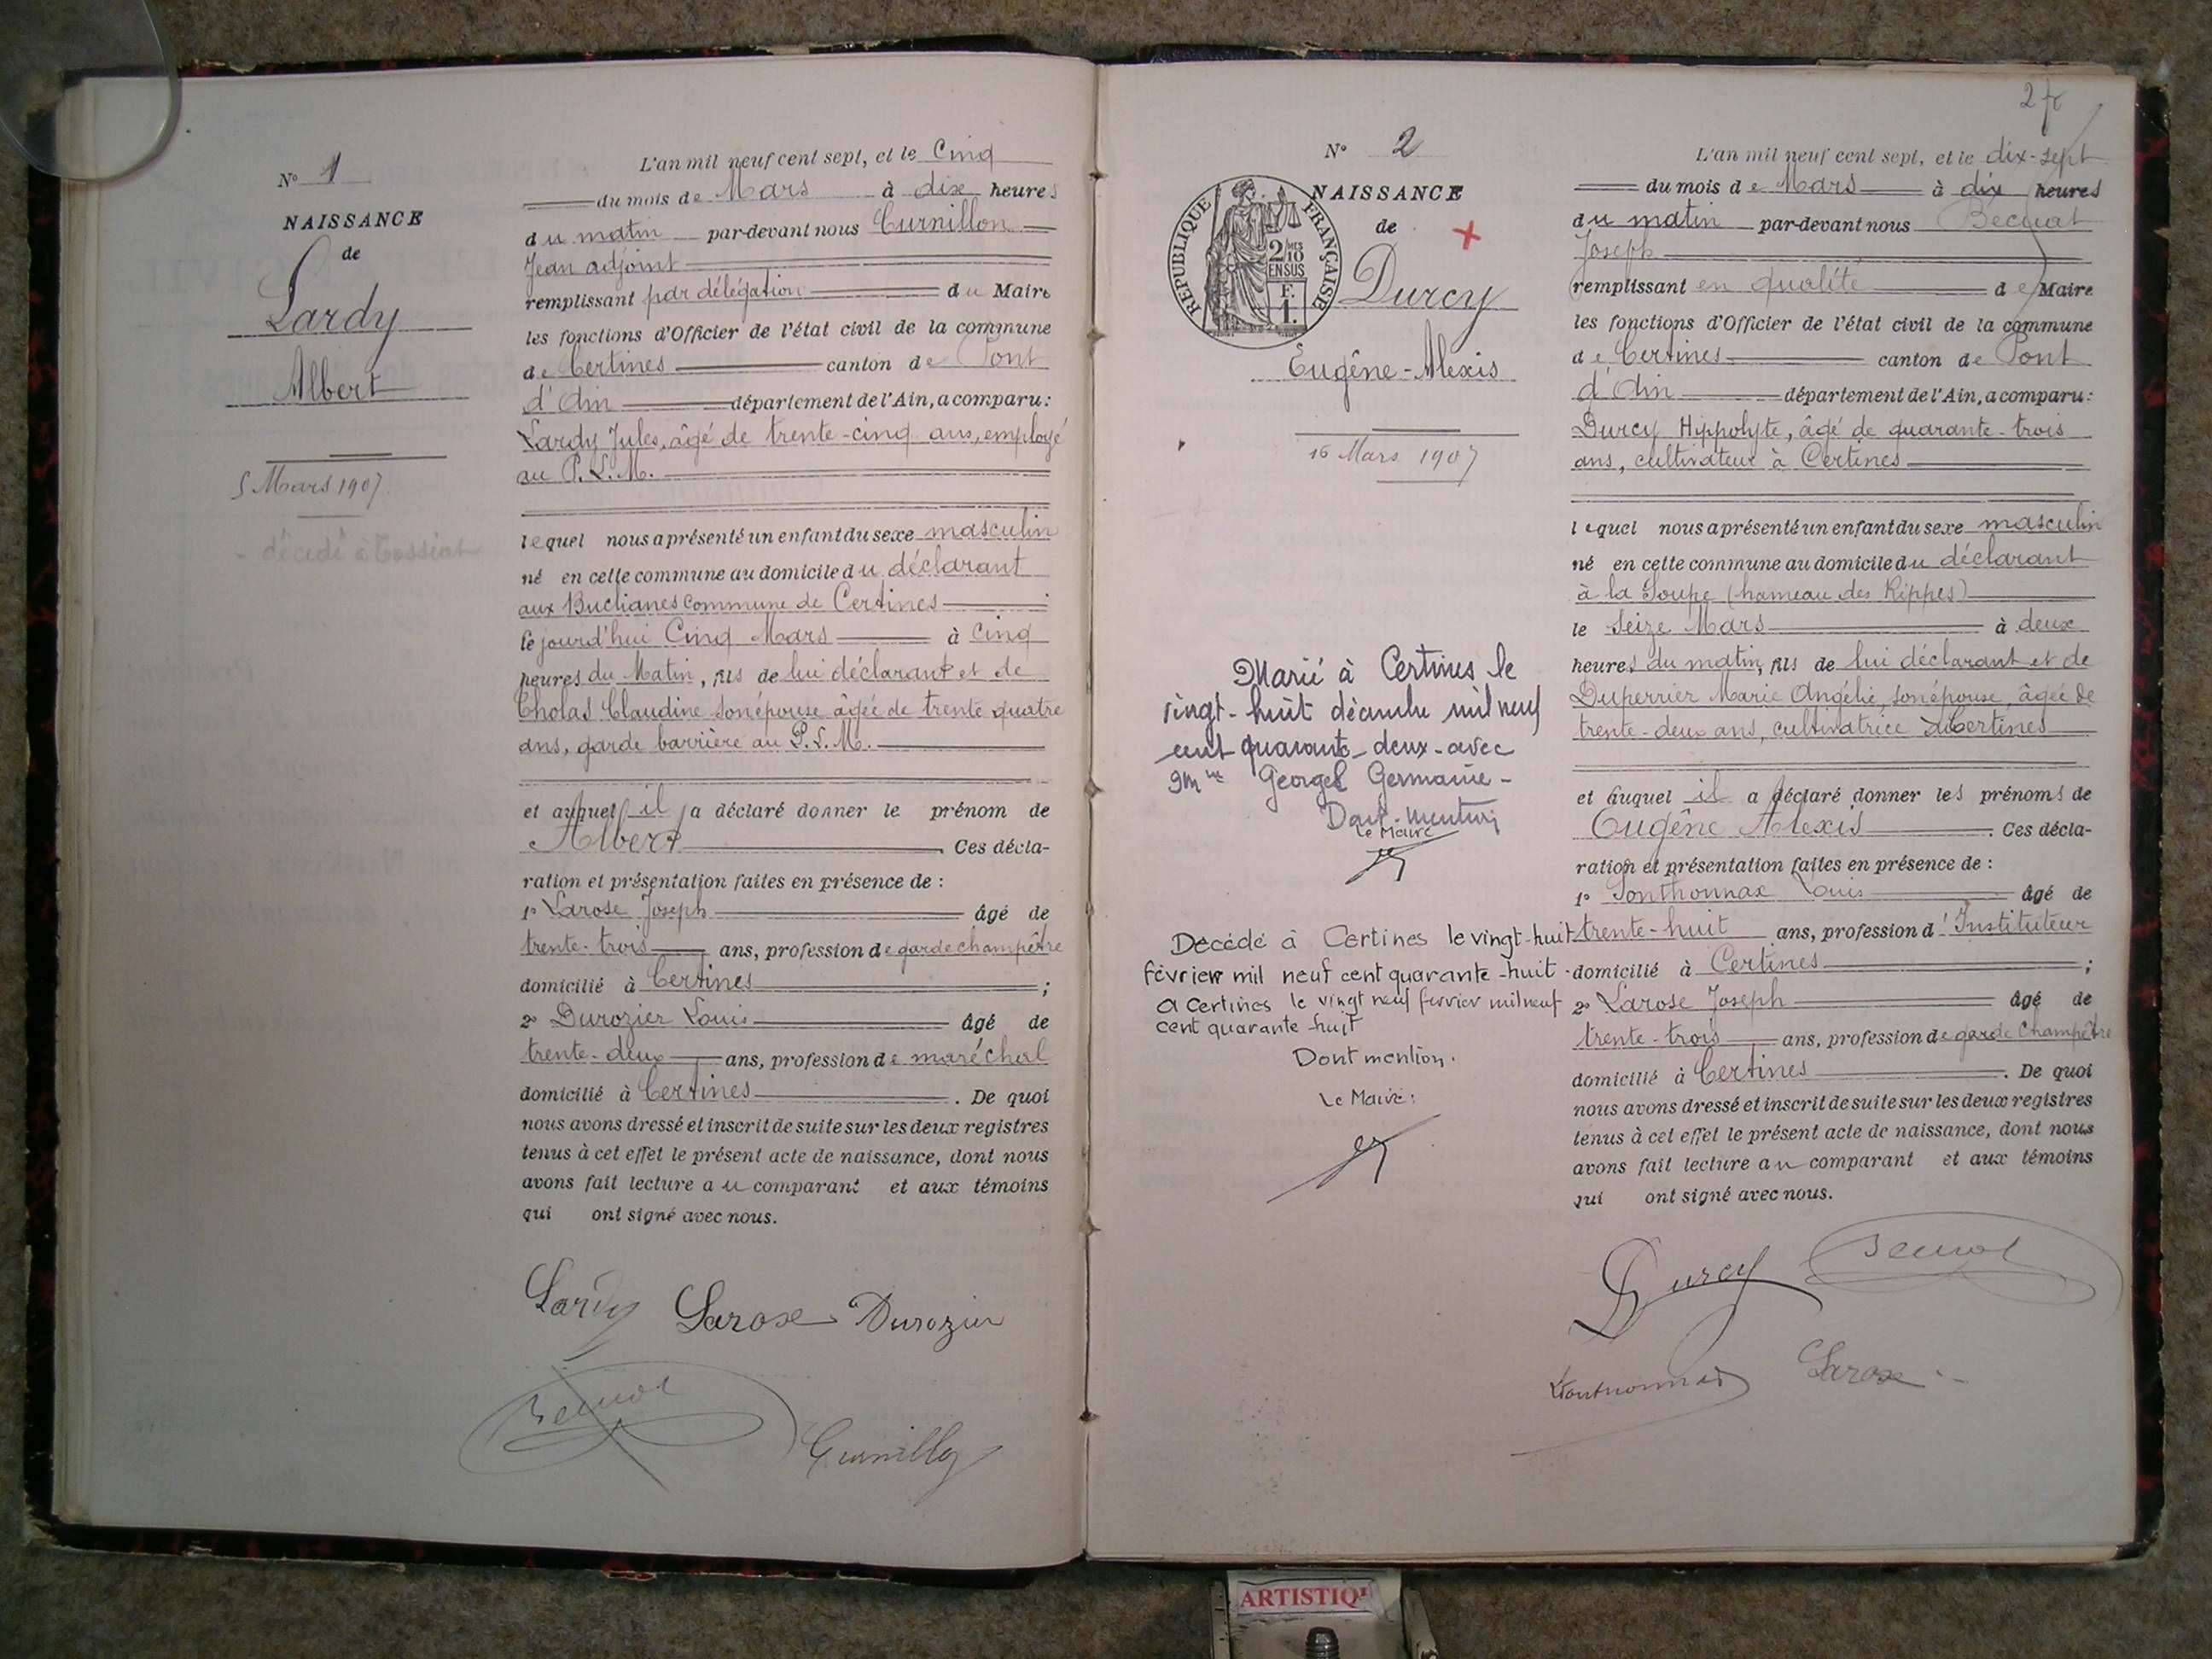 N° 1
NAISSANCE
de
Lardy
Albert
5 Mars 1907
L'an mil neuf cent sept, et le Cinq
du mois de Mars à dix heures
du matin par-devant nous Curnillon
Jean adjoint
remplissant par délégation du Maire
les fonctions d'Officier de l'état civil de la commune
de Certines canton de Pont
d'Ain département de l'Ain, a comparu :
Lardy Jules, âgé de trente-cinq ans, employé
au P.L.M.
lequel nous a présenté un enfant du sexe masculin
né en cette commune au domicile du déclarant
aux Buclianes commune de Certines
le jourd'hui Cinq Mars à cinq
heures du Matin, fils de lui déclarant et de
Cholas Claudine son épouse âgée de trente quatre
ans, garde barrière au P.L.M.
et auquel il a déclaré donner le prénom de
Albert. Ces décla-
ration et présentation faites en présence de :
1° Larose Joseph âgé de
trente-trois ans, profession de garde champêtre
domicilié à Certines ;
2° Durozier Louis âgé de
trente-deux ans, profession de maréchal
domicilié à Certines. De quoi
nous avons dressé et inscrit de suite sur les deux registres
tenus à cet effet le présent acte de naissance, dont nous
avons fait lecture au comparant et aux témoins
qui ont signé avec nous.
Lardy Larose Durozier
2 fr
N° 2
NAISSANCE
de
RÉPUBLIQUE FRANÇAISE
2/10 MES
EN SUS
F.
1.
Durcy
Eugêne-Alexis
16 Mars 1907
Marié à Certines le
vingt-huit décembre mil neuf
cent quarante-deux-avec
Mme Georges Germaine-
Dont-mention
Le Maire
Décédé à Certines le vingt-huit
février mil neuf cent quarante-huit.
A Certines le vingt neuf fevrier mil neuf
cent quarante huit
Dont mention.
Le Maire:
L'an mil neuf cent sept, et le dix-sept
du mois de Mars à dix heures
du matin par-devant nous Bécuat
Joseph
remplissant en qualité de Maire
les fonctions d'Officier de l'état civil de la commune
de Certines canton de Pont
d'Ain département de l'Ain, a comparu :
Durcy Hippolyte, âgé de quarante-trois
ans, cultivateur à Certines
lequel nous a présenté un enfant du sexe masculin
né en cette commune au domicile du déclarant
à la Loupe (hameau des Rippes)
le Seize Mars à deux
heures du matin, fils de lui déclarant et de
Duperrier Marie Angélie, son épouse, âgée de
trente-deux ans, cultivatrice à Certines
et auquel il a déclaré donner les prénoms de
Eugêne Alexis. Ces décla-
ration et présentation faites en présence de :
1° Sonthonnax Louis âgé de
trente-huit ans, profession d'Instituteur
domicilié à Certines ;
2° Larose Joseph âgé de
trente-trois ans, profession de garde Champêtre
domicilié à Certines. De quoi
nous avons dressé et inscrit de suite sur les deux registres
tenus à cet effet le présent acte de naissance, dont nous
avons fait lecture au comparant et aux témoins
qui ont signé avec nous.
Durcy Becuat
Sonthonnax Larose
ARTISTIQ